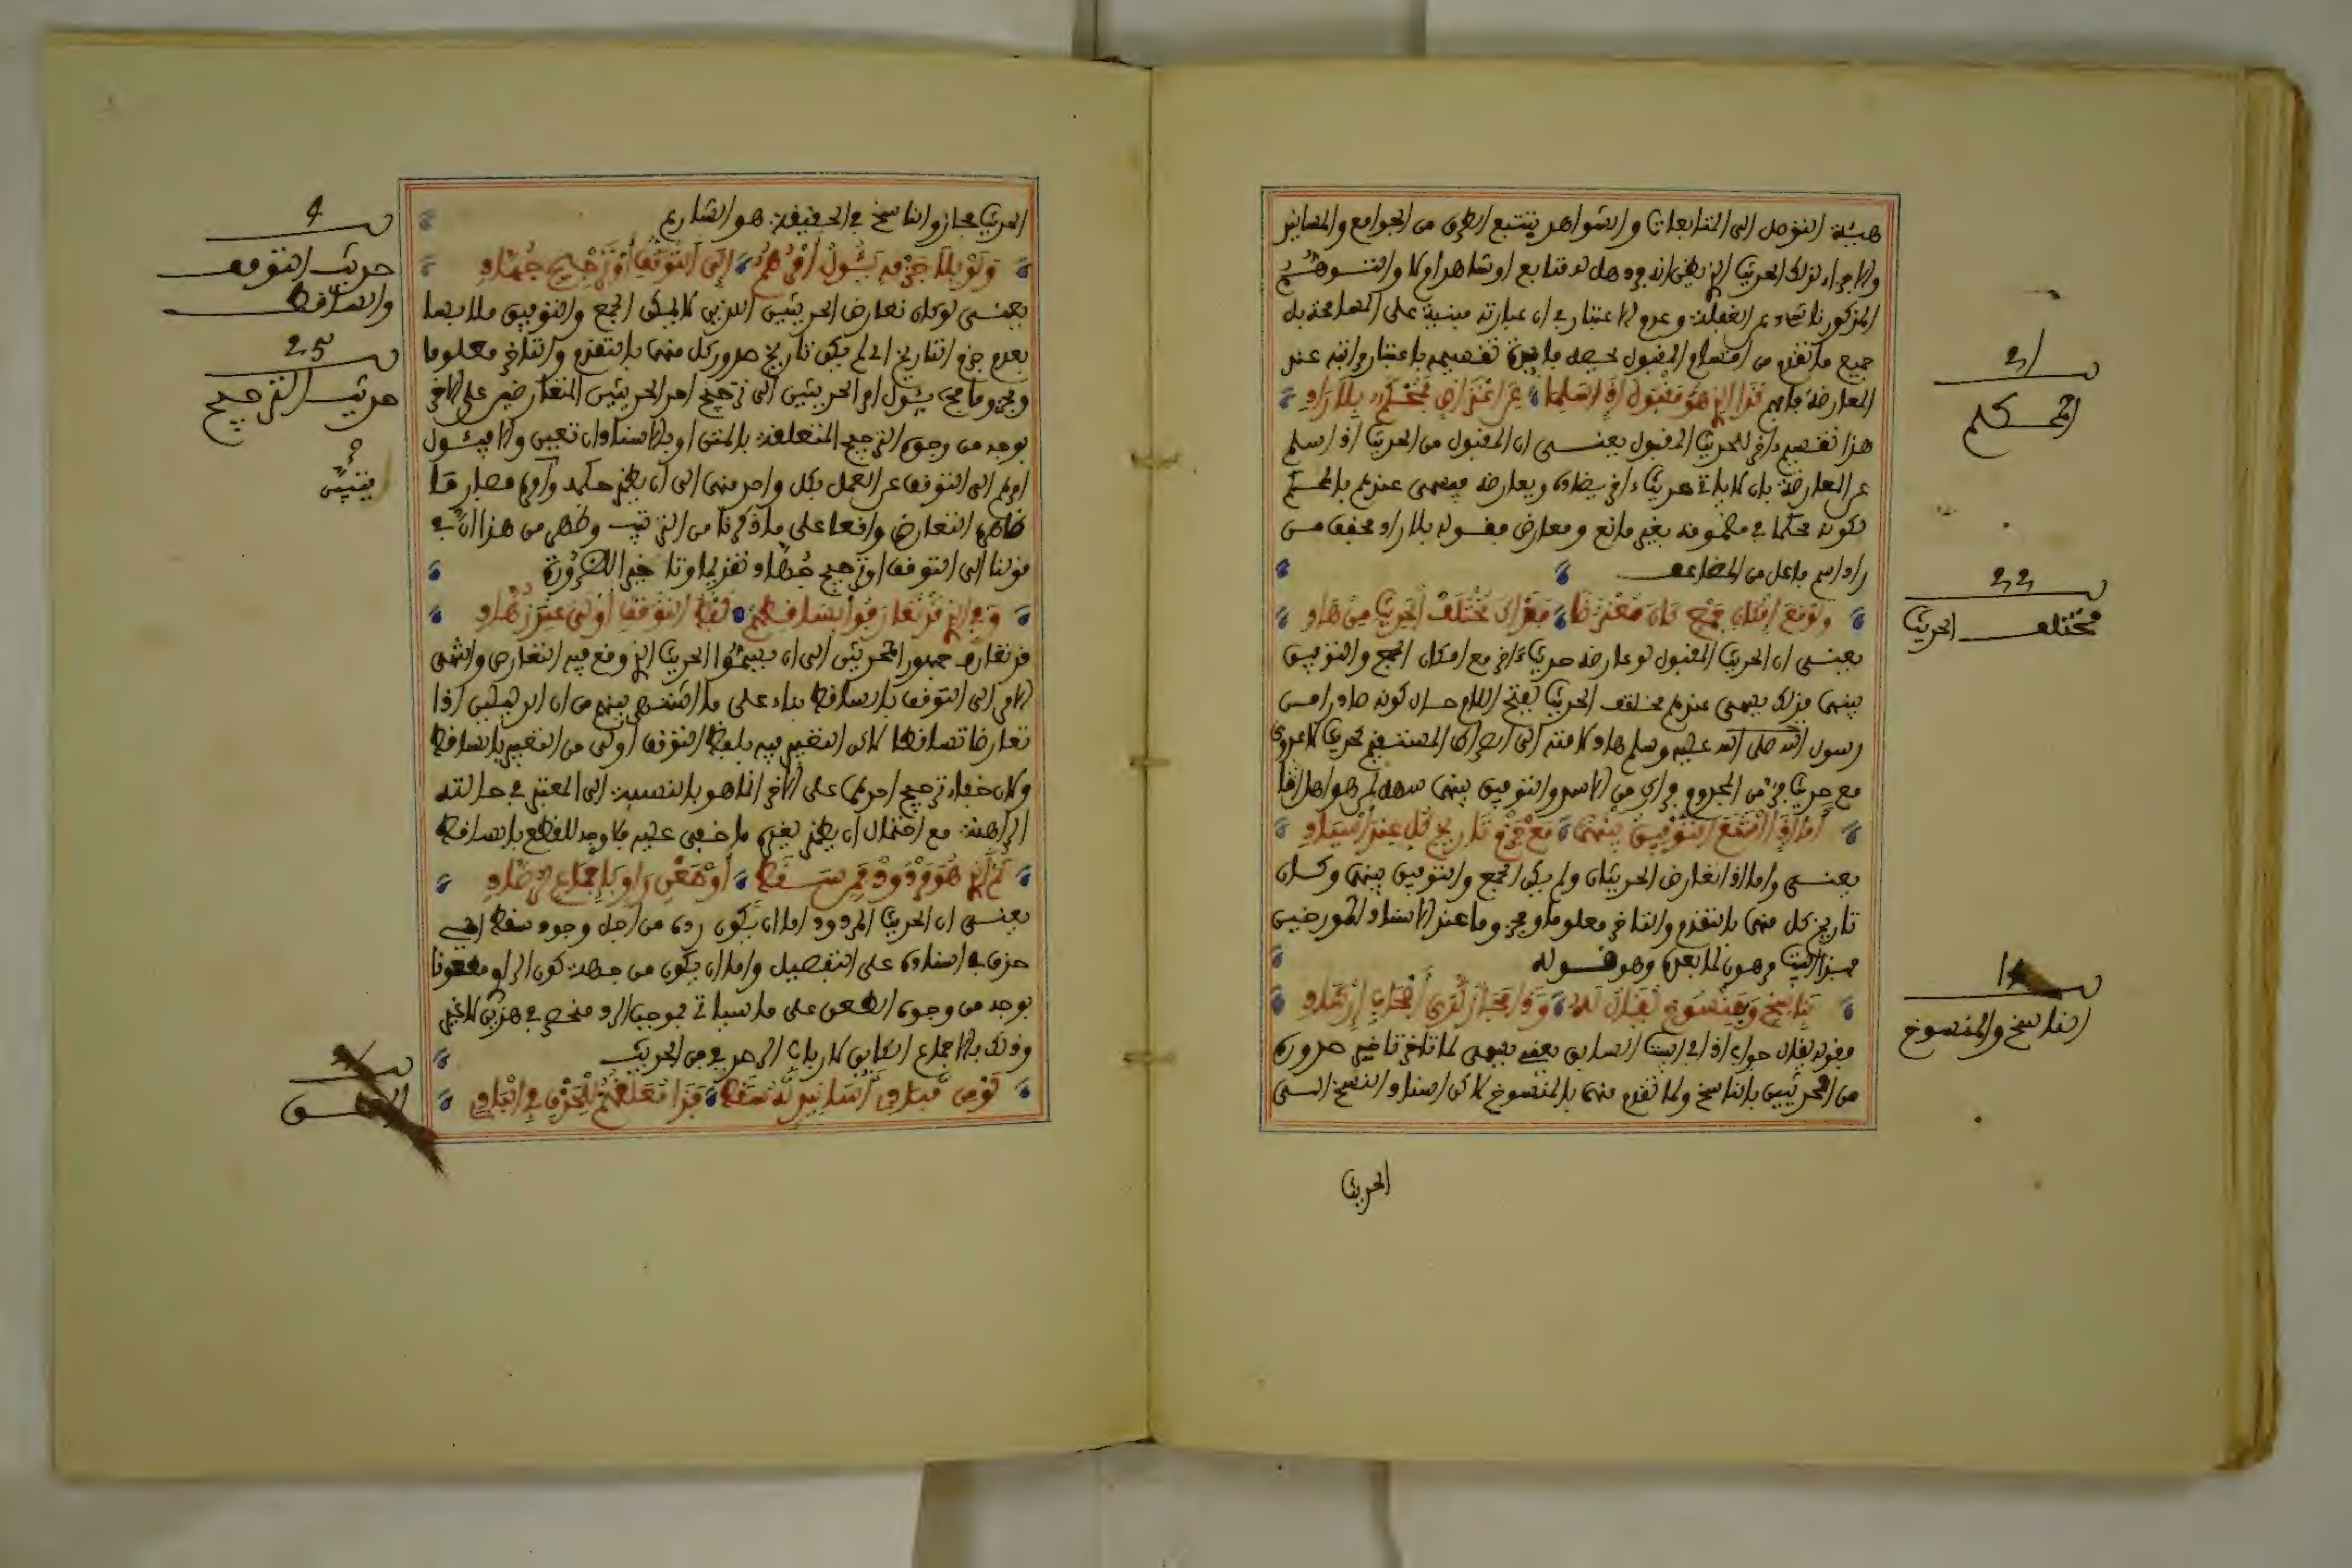 هيئة التوصل الى المتابعات والشواهد بتتبع الطرق من الجوامع والمسانيد
والاجزاء لذلك الحديث الذي يظن انه فرد هل له متابع او شاهد ام لا والتنبيه
المذكور ناشئ عن الغفلة وعدم الاعتبار في ان عبارته مبنية على المسامحة بل
جميع ما تقدم من اقسام المقبول تحصل فائدة تقسيمه باعتبار مراتبه عند
المعارضة فافهم فذا الذي هو مقبول اذا سلما عن اعتراض فمحكم بلا راد
هذا تقسيم ءاخر للحديث المقبول يعنى ان المقبول من الحديث اذا سلم
عن المعارضة بان لا ياتي حديث ءاخر يضاده ويعارضه فيسمى عندهم بالمحكم
لكونه محكما في مضمونه بغير مانع ومعارض فقوله بلا راد مخفف من
راد اسم فاعل من المضاعف
ولو مع امكان جمع كان معترضا فقد اتى مختلف الحديث من هاد
يعنى ان الحديث المقبول لو عارضه حديث ءاخر مع امكان الجمع والتوفيق
بينهما فذلك يسمى عندهم مختلف الحديث بفتح اللام حال كونه صادرا من
رسول الله صلى الله عليه وسلم هاد لامته الى الصراط المستقيم كحديث لا عدوى
مع حديث فر من المجذوم فرارك من الاسد والتوفيق بينهما سهل
اما اذا امتنع التوفيق بينهما مع جزم تاريخ كل عند اسناد
يعنى واما اذا تعارض الحديثان ولم يمكن الجمع والتوفيق بينهما وكان
تاريخ كل منهما بالتقدم والتاخر معلوما ومجزوما عند الاسناد
فهذا البيت مرهون لما بعده وهو قوله
بناسخ وبمنسوخ يقال له وذا مجاز لدى اصحاب ارشاد
فقوله يقال جواب اذا في البيت السابق يعني يسمى لما تاخر تاخير صدوره
من الحديثين بالناسخ ولما تقدم منهما بالمنسوخ لاكن اسناد النسخ الى
الحديث
21
المحكم
22
مختلف الحديث
الناسخ والمنسوخ
الحديث مجاز والناسخ في الحقيقة هو الشارع
ولو بلا جزم يئول امرهم الى التوقف او ترجيح
يعنى لو كان تعارض الحديثين الذين لا يمكن الجمع والتوفيق ملابسا
بعدم جزم التاريخ اي لم يكن تاريخ صدور كل منهما بالتقدم والتاخر معلوما
ومجزوما فيئول امر الحديثين الى ترجيح احد الحديثين المتعارضين على الاخر
بوجه من وجوه الترجيح المتعلقة بالمتن او بالاسناد ان تعين والا فيئول
امرهم الى التوقف عن العمل بكل واحد منهما الى ان يظهر حكمه وامره فصار ما
ظاهره التعارض واقعا على ما ذكرنا من الترتيب وظهر من هذا ان في
قولنا الى التوقف او ترجيح تقديما وتاخيرا للضرورة
وفي الذي قد تعارفوا بتساقطهم لفظ التوقف اولى عند زهاد
قد تعارف جمهور المحدثين الى ان يسموا الحديث الذي وقع فيه التعارض وانتهى
الامر الى التوقف بالتساقط بناء على ما اشتهر بينهم من ان الدليلين اذا
تعارضا تساقطا لاكن التعبير فيه بلفظ التوقف اولى من التعبير بالتساقط
وكان خفاء ترجيح احدهما على الاخر انما هو بالنسبة الى المعتبر في حالته
الراهنة مع احتمال ان يظهر لغيره ما خفي عليه فلا وجه للقطع بالتساقط
ثم الذي هو مردود فمن سقط او طعن راو باجماع
يعنى ان الحديث المردود اما ان يكون رده من اجل وجود سقط اي
حذف في اسناده على التفصيل واما ان يكون من جهة كون الراوي مطعونا
بوجه من وجوه الطعن على ما سياتي فموجب الرد منحصر في هذين لا غير
وذلك بالاجماع الكائن لارباب من الحديث
لو من مبادي اسانيد له سقط فذا تعلقهم للحذف في البادي
4
حديث التوقف
والتساقط
25
حديث الترجيح